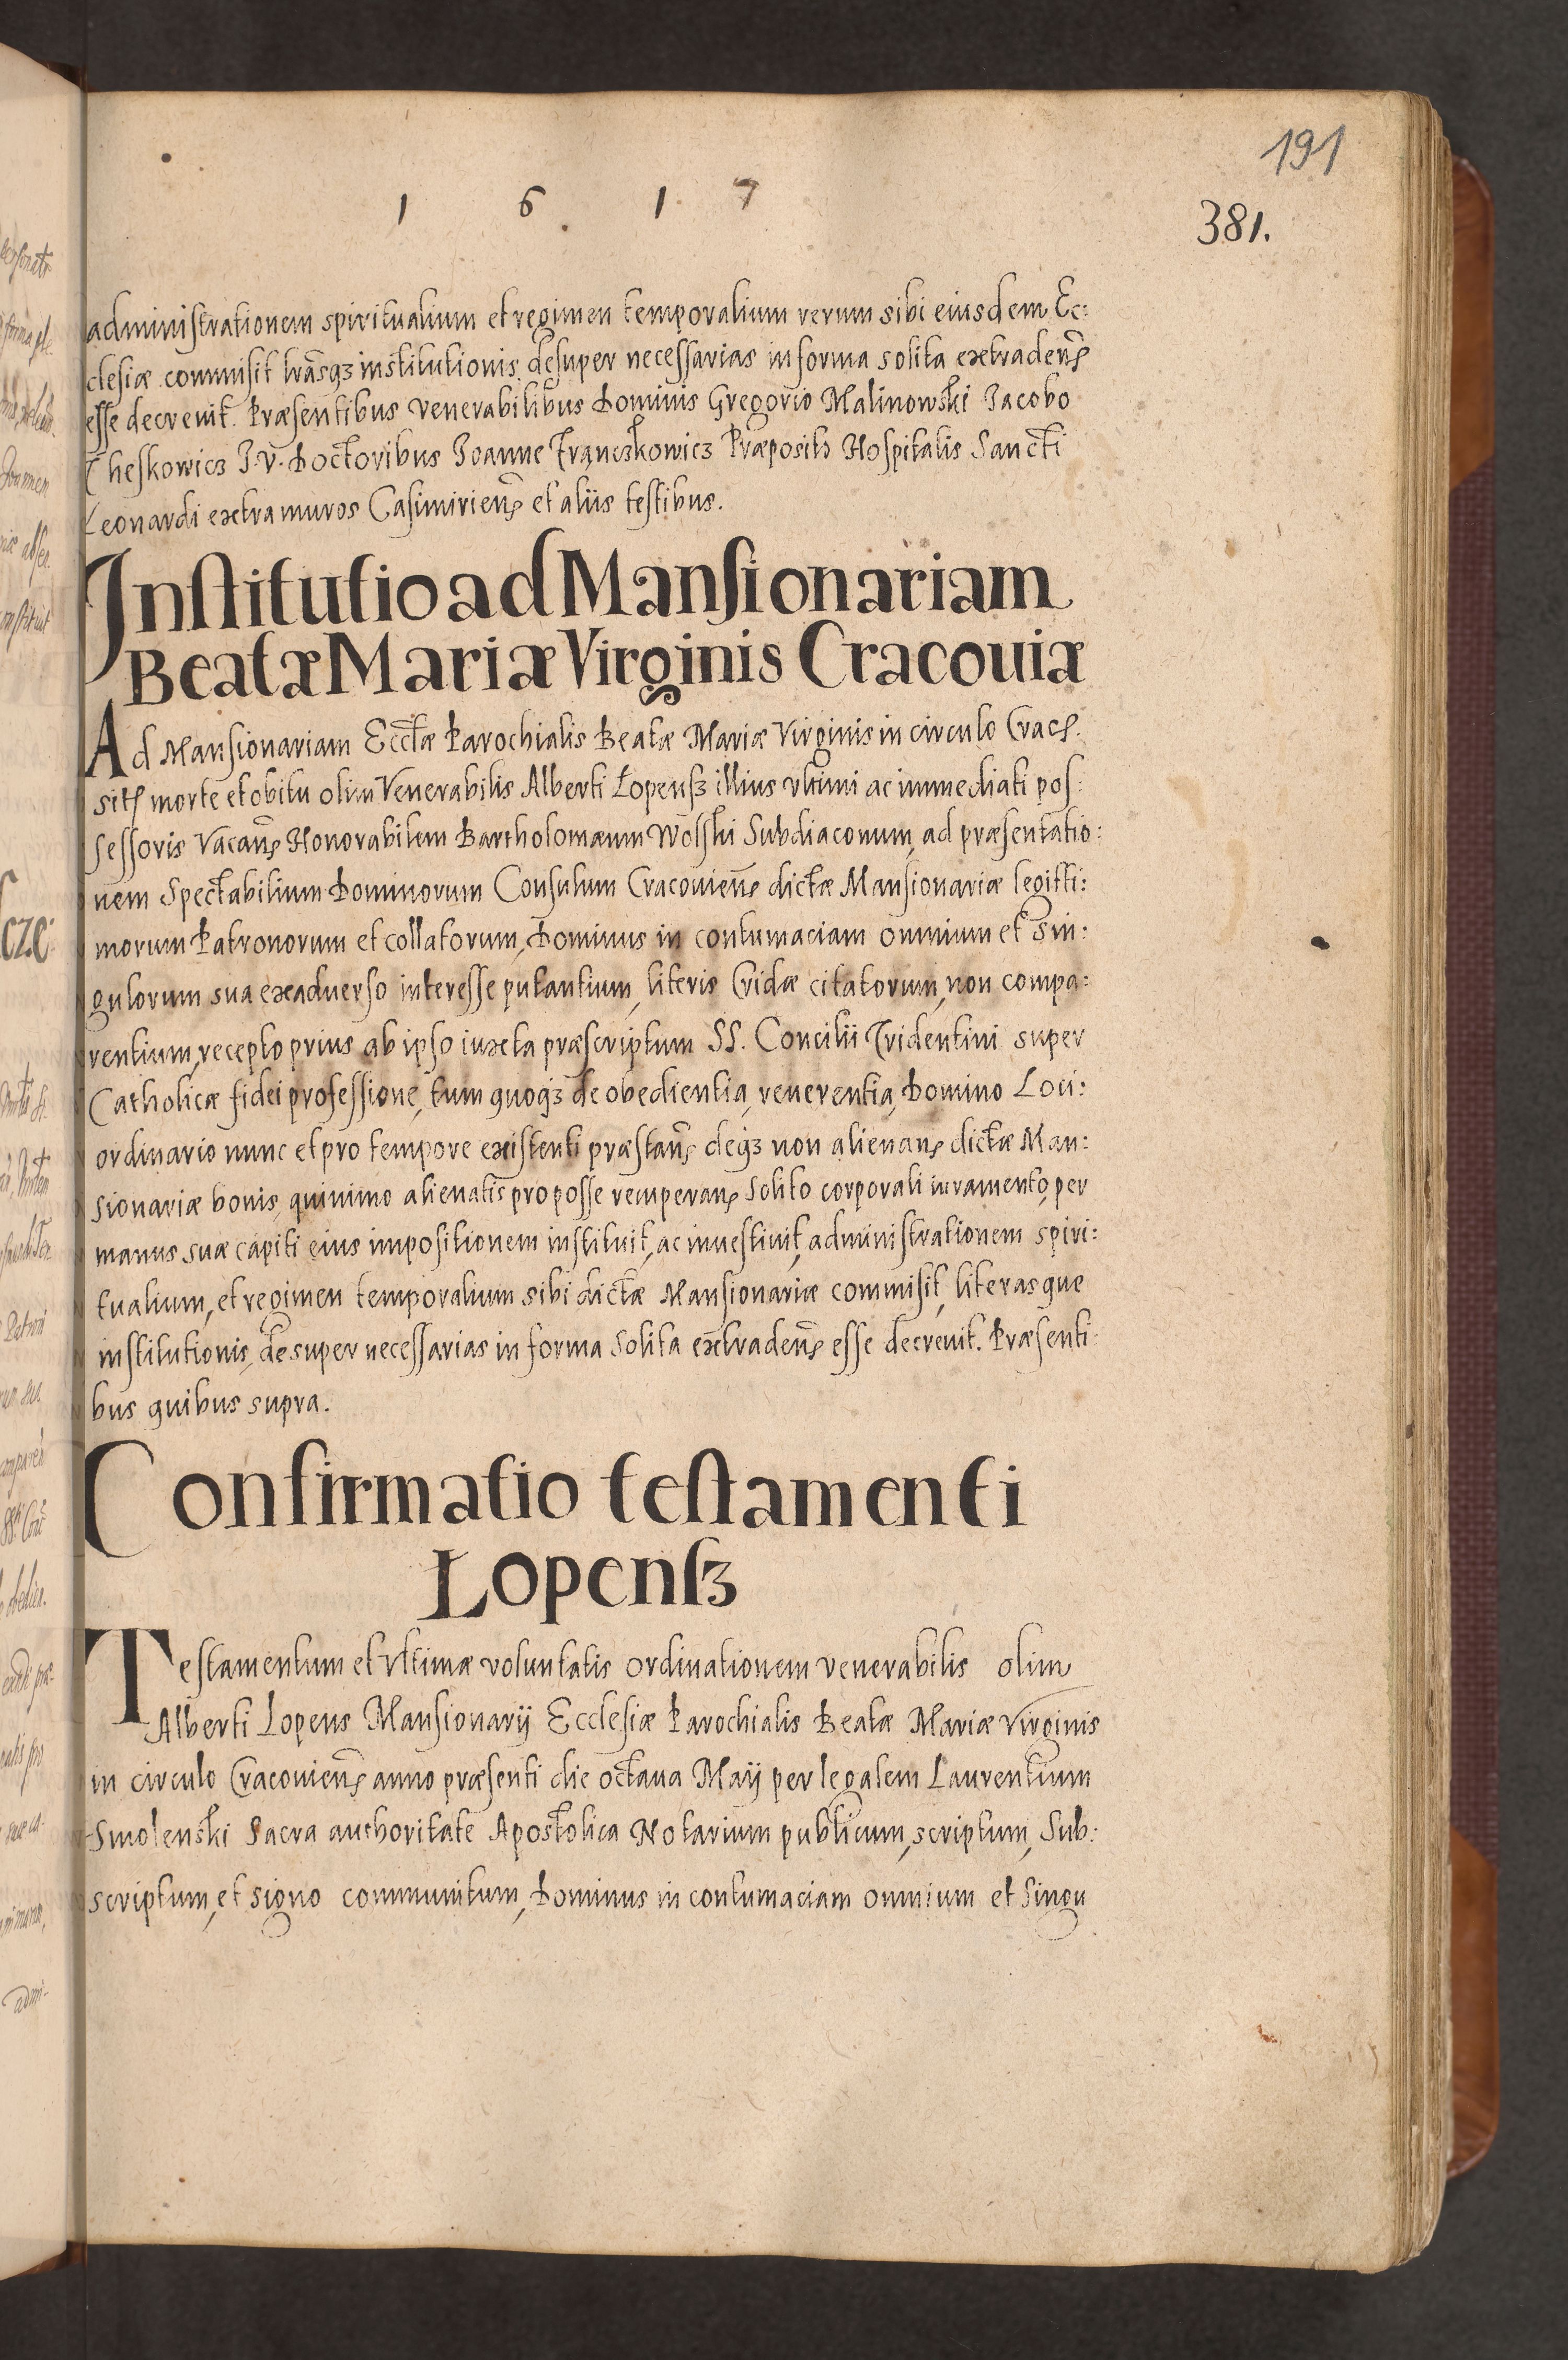 191
1 6 1 7
381.
administrationem spiritualium et regimen temporalium rerum sibi eiusdem Ec:
clesiæ commisit lrãsqz institutionis desuper necessarias in forma solita extradeñ
esse decrevit. Præsentibus venerabilibus Dominis Gregorio Malinowski Jacobo
Cheskowicz J. V. Doctoribus Joanne Franczkowicz Præposito Hospitalis Sancti
Leonardi extra muros Casimirieñ et aliis testibus.
Institutio ad Mansionariam
Beatæ Mariæ Virginis Cracouiæ
Ad Mansionariam Ecctæ Parochialis Beatæ Mariæ Virginis in circulo Crac.
sit morte et obitu olim Venerabilis Alberti Lopensz illius vltimi ac immediati pos:
sessoris Vacañ Honorabilem Bartholomæum Wolski Subdiaconum, ad præsentatio:
nem Spectabilium Dominorum Consulum Cracovieñ dictæ Mansionariæ legitti:
morum Patronorum et collatorum, Dominus in contumaciam omnium et sin:
gulorum sua exaduerso interesse putantium, literis Cridæ citatorum, non compa:
rentium, recepto prius ab ipso iuxta præscriptum SS. Concilii Tridentini super
Catholicæ fidei professione, tum quoqz de obedientia, reuerentia, Domino Loci:
ordinario nunc et pro tempore existenti præstañ deqz non alienañ dictæ Man:
sionariæ bonis, quinimo alienatis pro posse remperañ solito corporali iuramento, per
manus suæ capiti eius impositionem instituit, ac inuestiuit, administrationem spiri:
tualium, et regimen temporalium sibi dictæ Mansionariæ commisit, literasque
institutionis, desuper necessarias in forma solita extradeñ esse decrevit. Præsenti:
bus quibus supra.
Confirmatio testamenti
Lopensz
Testamentum et vltimæ voluntatis ordinationem venerabilis olim
Alberti Lopens Mansionarij Ecclesiæ Parochialis Beatæ Mariæ Virginis
in circulo Cracovieñ anno præsenti die octaua Maij per legalem Laurentium
Smolenski Sacra authoritate Apostolica Notarium publicum, scriptum, Sub:
scriptum, et signo communitum, Dominus in contumaciam omnium et Singu